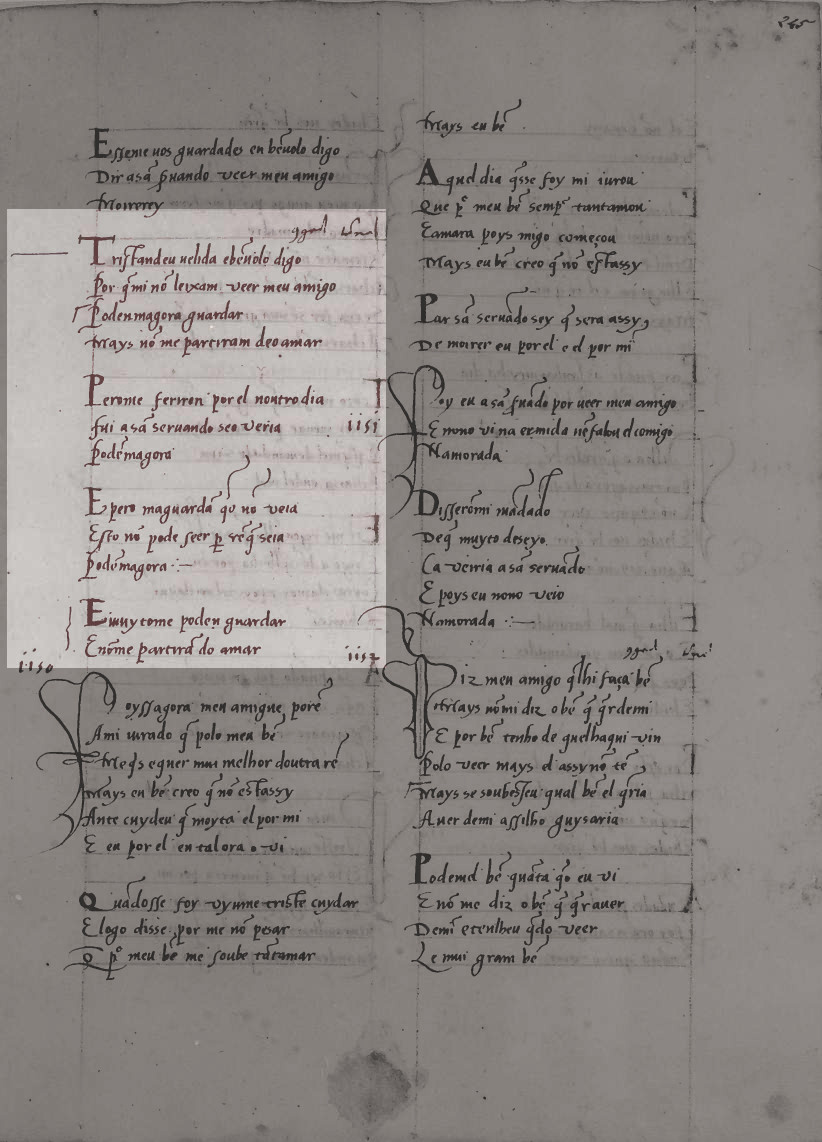 Esseme uos guardades en bẽuolo digo
Dir asã s̃uando veer meu amigo
Moirerey
Tristandeu uelida ebẽuolo digo
Por q̃mi nõ leixam veer meu amigo
Podenmagora guardar
Mays nõ me partiram deo amar
Perome feriron por el noutro dia
fui a sã seruando seo veria
podẽmagora
E pero maguardã q̃o nõ veia
Esto nõ pode seer per
podẽmagora
E muytome poden guardar
E nõme partirã do amar
1150
Poyssagora meu amigue porẽ
A mi iurado q̃ polo meu bẽ
Me q̃s e quer mui melhor doutra rẽ
Mays eu bẽ creo q̃ nõ estassy
Ante cuydeu q̃ moyra el por mi
E eu por el en tal ora o vi
Quãdosse foy vyume triste cuydar
E logo disse por me nõ pesar
Q̃ p̃ meu bẽ me soube tãtamar
245
Mays eu bẽ
Aquel dia q̃sse foy mi iurou
Que p̃ meu bẽ semp̃ tantamou
E amara poys migo começou
Mays eu bẽ creo q̃ nõ estassy
Par sã seruãdo sey q̃ sera assy
De moirer eu por el e el por mi
1151
Foy eu a sã s̃uãdo por ueer meu amigo
E nono vi na ermida nẽ falou el comigo
Namorada
Disserõmi mãdado
Deq̃ muyto deseyo
Ca verria a sã seruãdo
E poys eu nono veio
Namorada
1152
Diz meu amigo q̃lhi faça bẽ
Mays nõmi diz o bẽ q̃ q̃r demi
E por bẽ tenho de quelhaqui vin
Polo veer mays el assy nõ tẽ
Mays se soubesseu qual bẽ el q̃ria
Auer demi assilho guysaria
Pedemel bẽ quãta q̃o eu vi
E nõ me diz o bẽ q̃ q̃r auer
Demi e tenlheu q̃do veer
Le mui gram bẽ